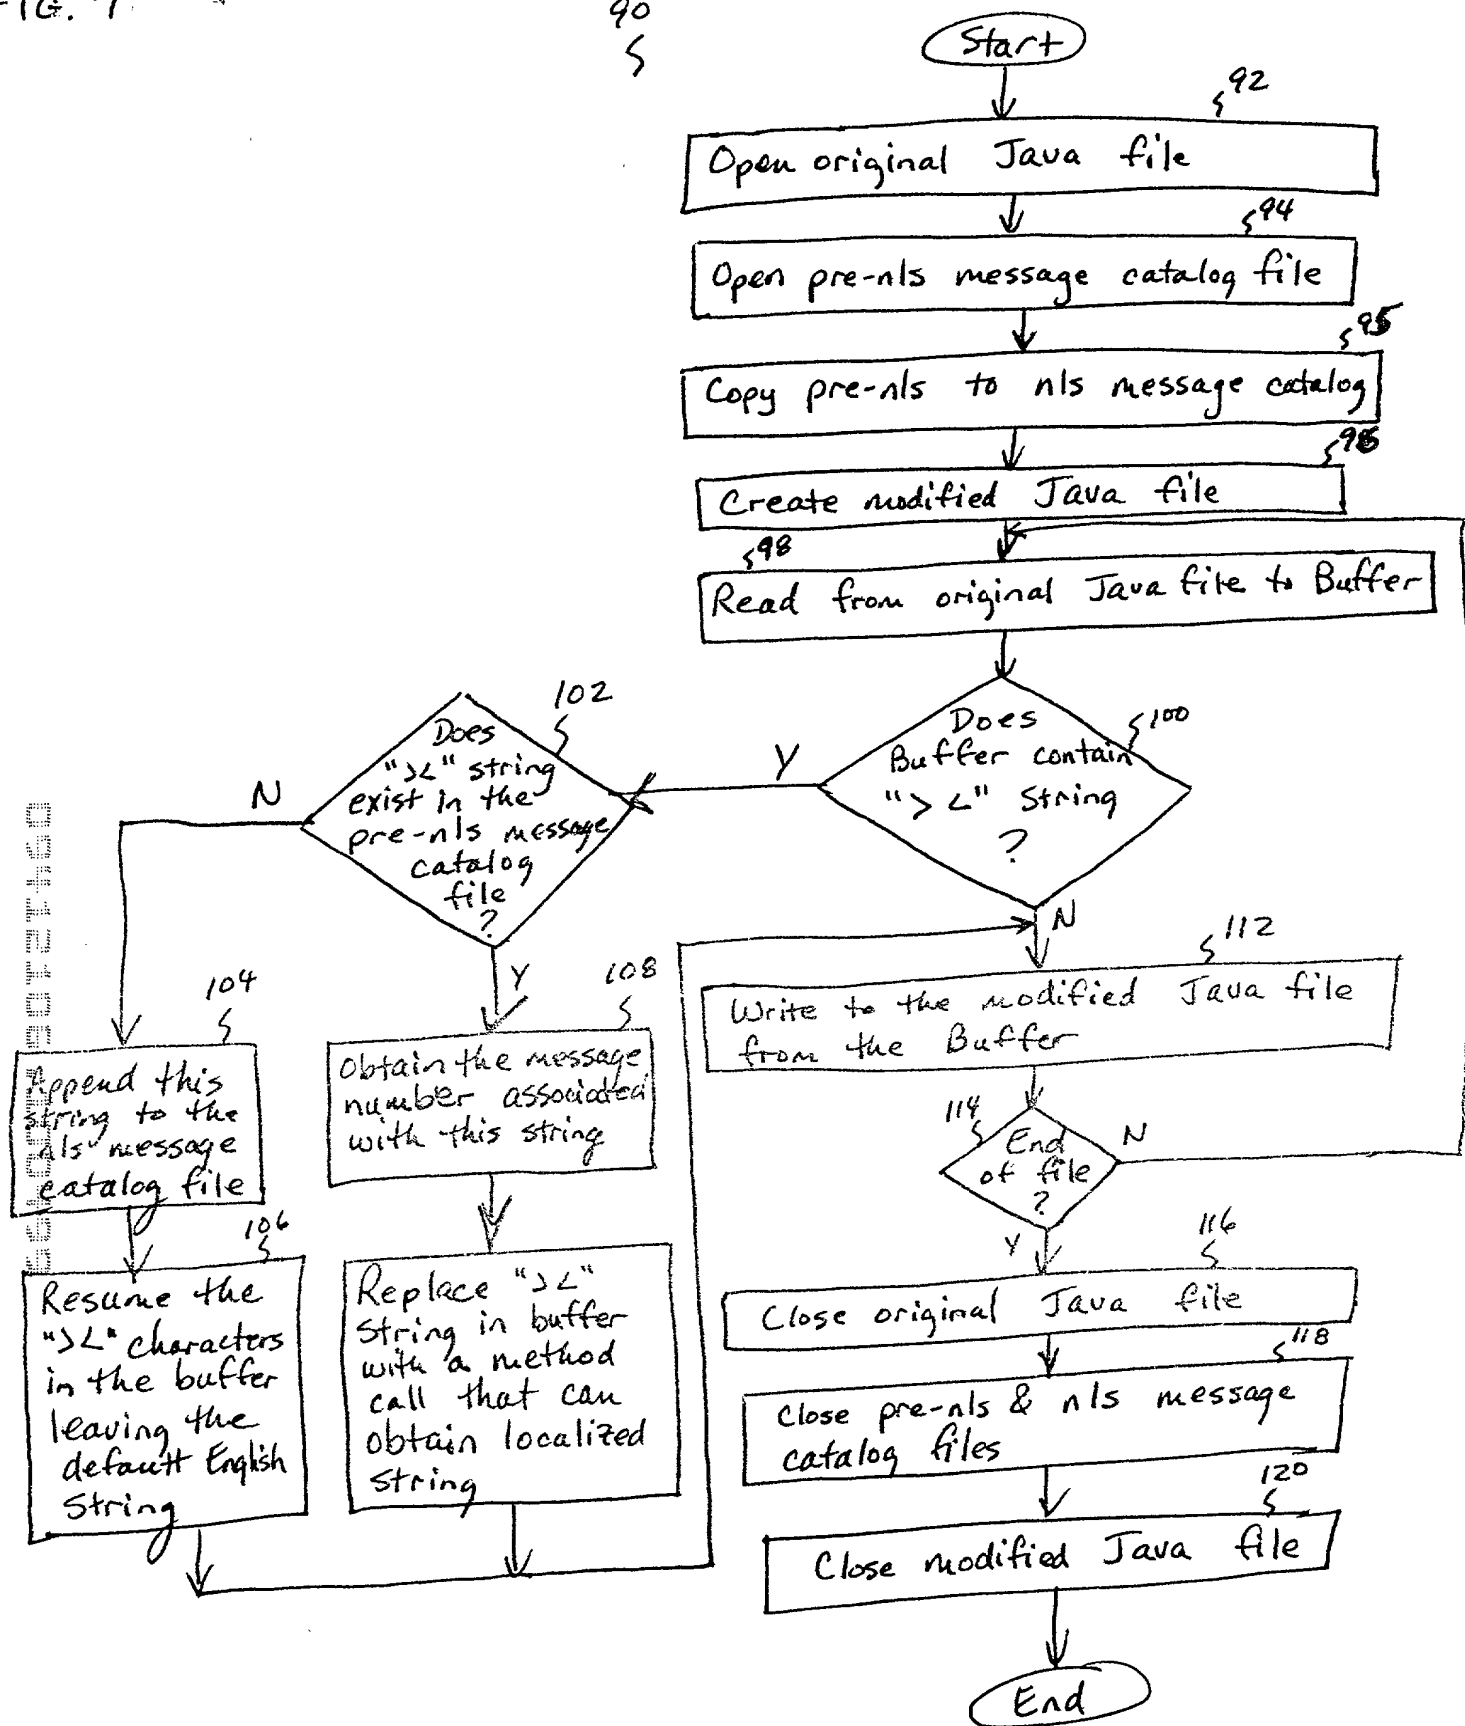 FIG. 7
90
Start
92
Open original Java file
94
Open pre-nls message catalog file
95
Copy pre-nls to nls message catalog
96
Create modified Java file
98
Read from original Java file to Buffer
100
Does
Buffer contain
"> <" String
?
Y
N
102
Does
"> <" string
exist in the
pre-nls message
catalog
file
?
N
Y
104
Append this
string to the
nls message
catalog file
106
Resume the
"> <" characters
in the buffer
leaving the
default English
String
108
Obtain the message
number associated
with this string
Replace "> <"
String in buffer
with a method
call that can
obtain localized
string
112
Write to the modified Java file
from the Buffer
114
End
of file
?
N
Y
116
Close original Java file
118
Close pre-nls & nls message
catalog files
120
Close modified Java file
End